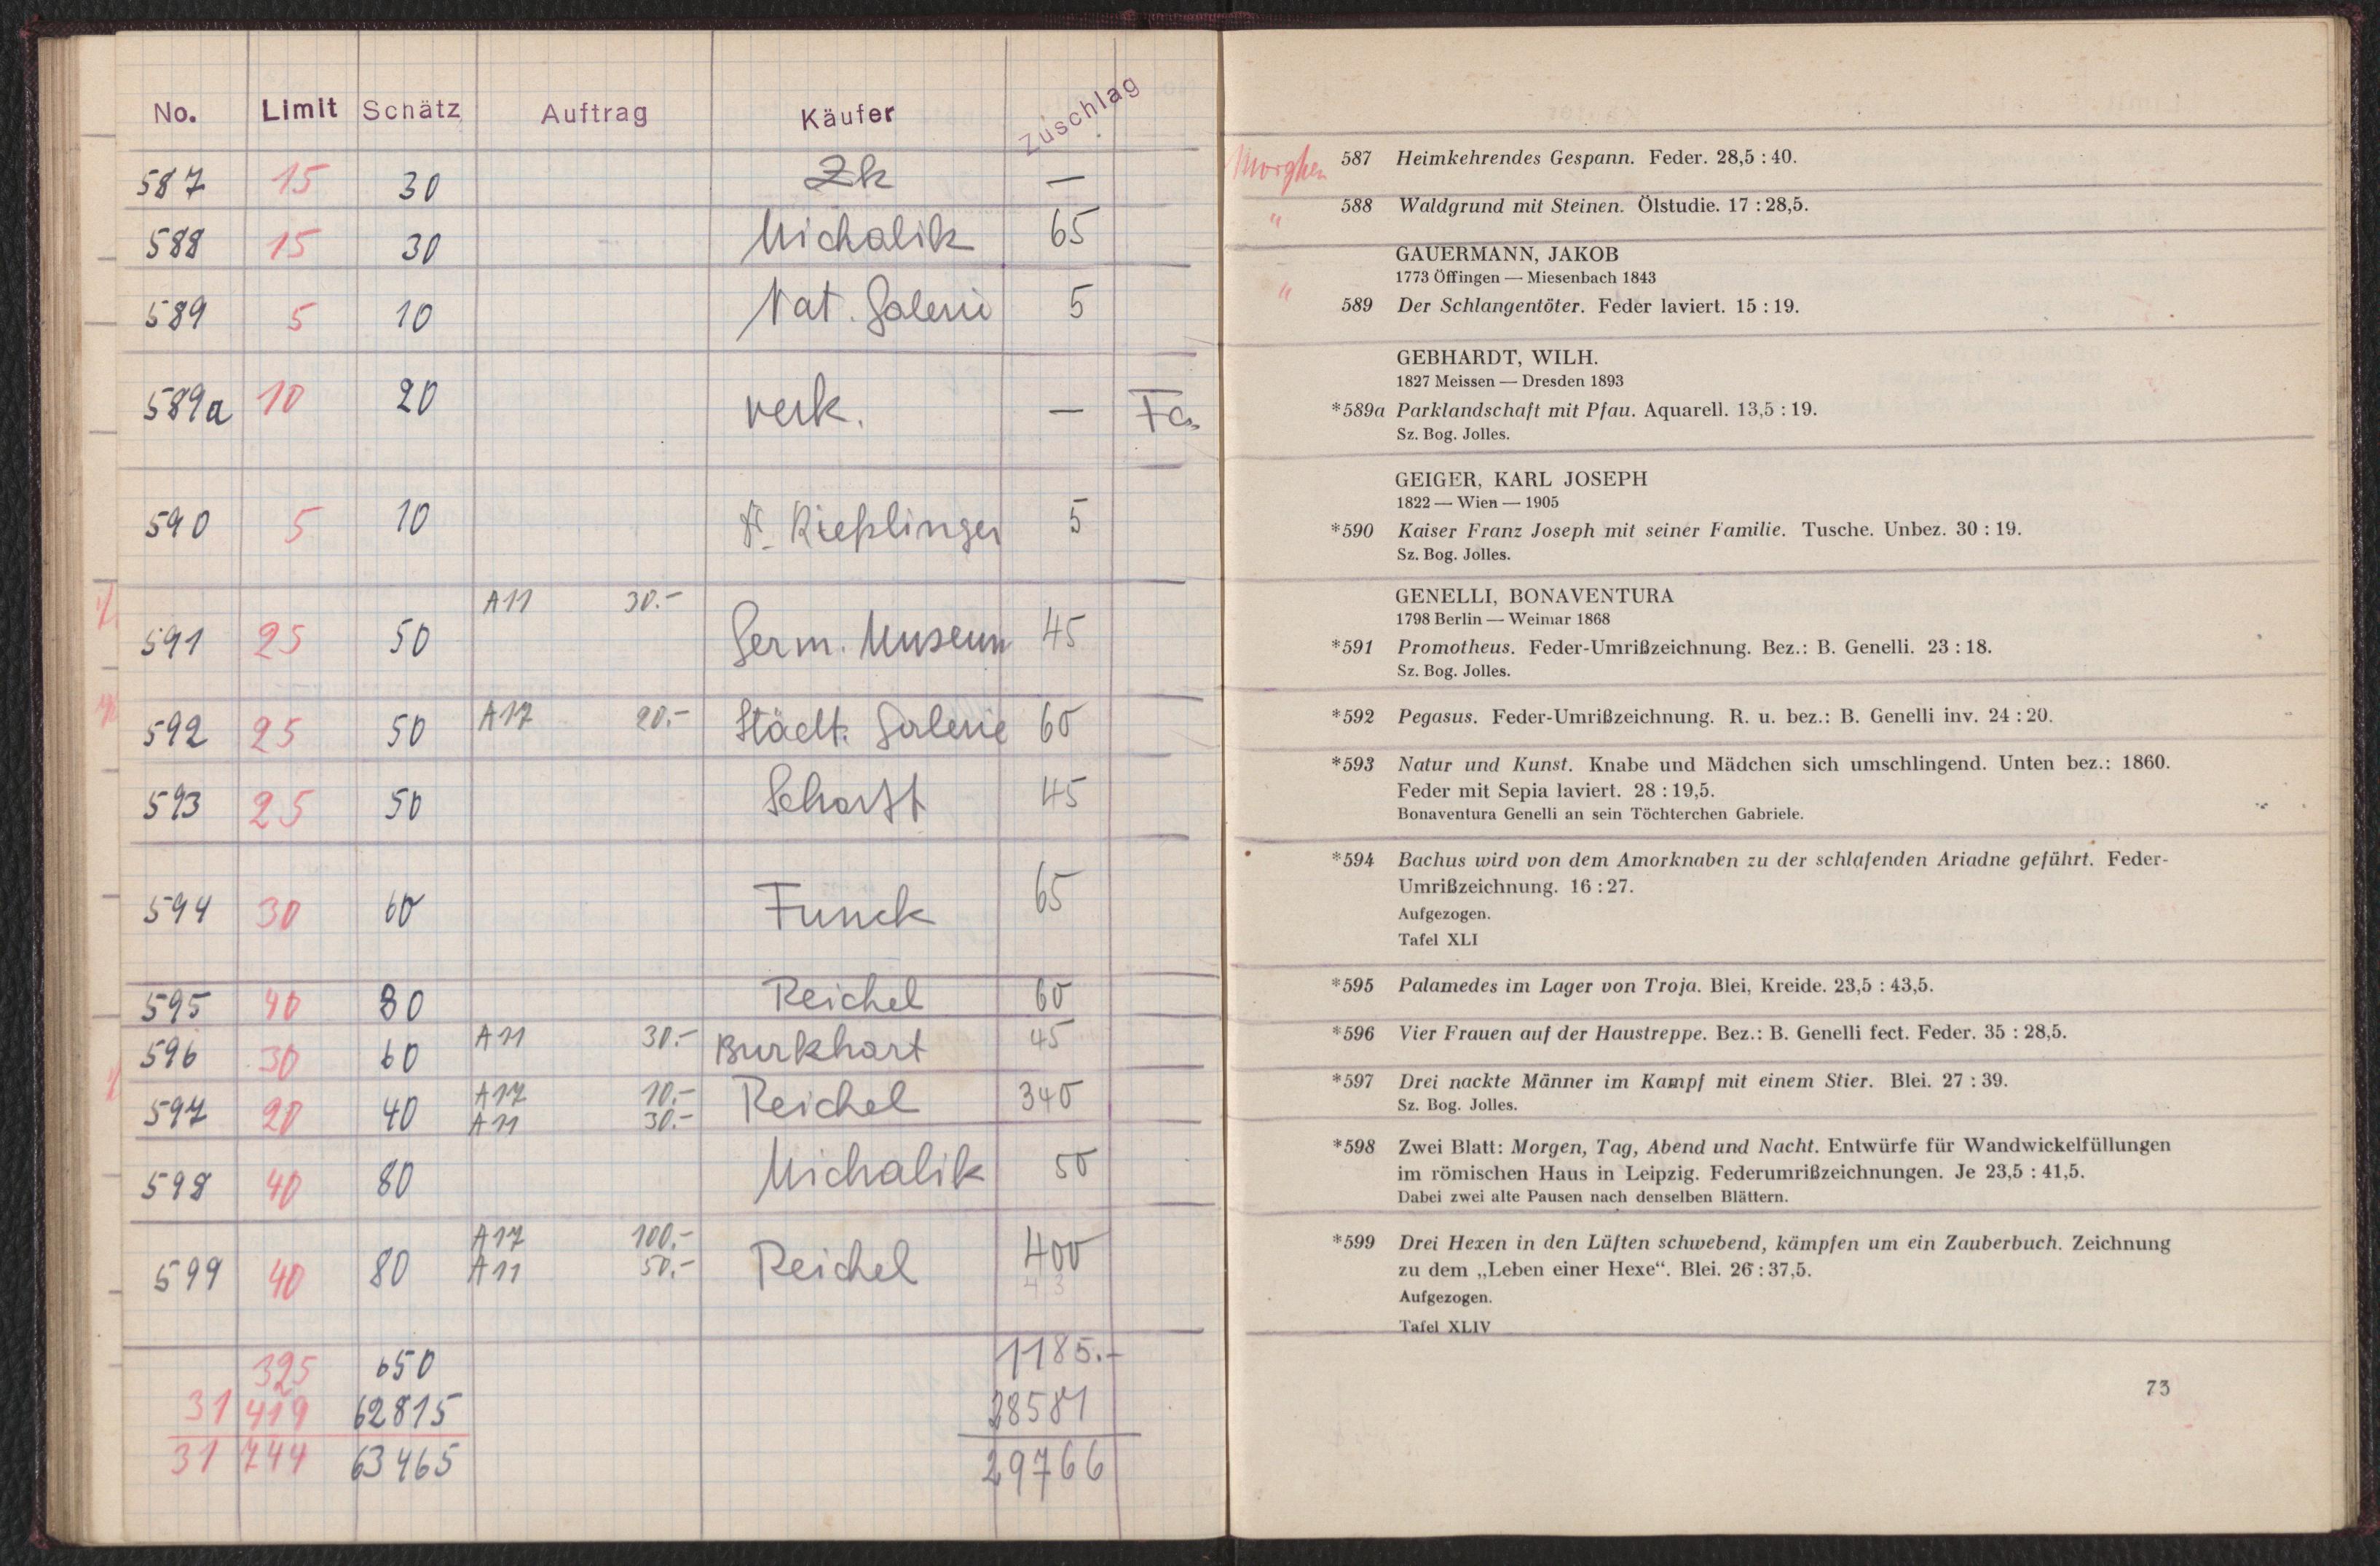 No. Limit Schätz Auftrag Käufer Zuschlag
587 15 30 Zk —
588 15 30 Michalik 65
589 5 10 Nat. Galerie 5
589a 10 20 verk. — Fa.
590 5 10 Kießlinger 5
A11 30.-
591 25 50 Germ. Museum 45
592 25 50 A17 20.- Städt. Galerie 60
593 25 50 Scharff 45
594 30 60 Funck 65
595 40 80 Reichel 60
596 30 60 A11 30.- Burkhart 45
597 20 40 A17 10.- Reichel 340
A11 30.-
598 40 80 Michalik 50
A17 100.-
599 40 80 A11 50.- Reichel 400
43
325 650 1185.-
31 419 62815 28581
31 744 63465 29766
Morghen 587 Heimkehrendes Gespann. Feder. 28,5 : 40.
" 588 Waldgrund mit Steinen. Ölstudie. 17 : 28,5.
GAUERMANN, JAKOB
1773 Öffingen — Miesenbach 1843
" 589 Der Schlangentöter. Feder laviert. 15 : 19.
GEBHARDT, WILH.
1827 Meissen — Dresden 1893
*589a Parklandschaft mit Pfau. Aquarell. 13,5 : 19.
Sz. Bog. Jolles.
GEIGER, KARL JOSEPH
1822 — Wien — 1905
*590 Kaiser Franz Joseph mit seiner Familie. Tusche. Unbez. 30 : 19.
Sz. Bog. Jolles.
GENELLI, BONAVENTURA
1798 Berlin — Weimar 1868
*591 Promotheus. Feder-Umrißzeichnung. Bez.: B. Genelli. 23 : 18.
Sz. Bog. Jolles.
*592 Pegasus. Feder-Umrißzeichnung. R. u. bez.: B. Genelli inv. 24 : 20.
*593 Natur und Kunst. Knabe und Mädchen sich umschlingend. Unten bez.: 1860.
Feder mit Sepia laviert. 28 : 19,5.
Bonaventura Genelli an sein Töchterchen Gabriele.
*594 Bachus wird von dem Amorknaben zu der schlafenden Ariadne geführt. Feder-
Umrißzeichnung. 16 : 27.
Aufgezogen.
Tafel XLI
*595 Palamedes im Lager von Troja. Blei, Kreide. 23,5 : 43,5.
*596 Vier Frauen auf der Haustreppe. Bez.: B. Genelli fect. Feder. 35 : 28,5.
*597 Drei nackte Männer im Kampf mit einem Stier. Blei. 27 : 39.
Sz. Bog. Jolles.
*598 Zwei Blatt: Morgen, Tag, Abend und Nacht. Entwürfe für Wandwickelfüllungen
im römischen Haus in Leipzig. Federumrißzeichnungen. Je 23,5 : 41,5.
Dabei zwei alte Pausen nach denselben Blättern.
*599 Drei Hexen in den Lüften schwebend, kämpfen um ein Zauberbuch. Zeichnung
zu dem „Leben einer Hexe“. Blei. 26 : 37,5.
Aufgezogen.
Tafel XLIV
73